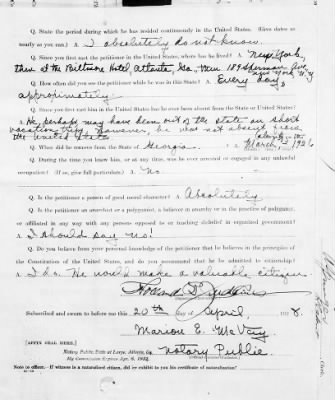 Q. State the period during which he has resided continuously in the United States. (Give dates as
nearly as you can.) A. I absolutely do not know.
Q. Since you first met the petitioner in the United States, where has he lived? A. New York,
then at the Biltmore Hotel, Atlanta, Ga, then 189 Sherman Ave
New York N.Y
Q. How often did you see the petitioner while he was in this State? A. Every day,
approximately.
Q. Since you first met him in the United States has he ever been absent from the State or United States?
A. He, perhaps may have been out of the state on short
vacation trips, however, he was not absent from
the United States
Q. When did he remove from the State of Georgia. A. March, 1926
Q. During the time you knew him, or at any time, was he ever arrested or engaged in any unlawful
occupation? (If so, give full particulars.) A. No.
Q. Is the petitioner a person of good moral character? A. Absolutely
Q. Is the petitioner an anarchist or a polygamist, a believer in anarchy or in the practice of polygamy,
or affiliated in any way with any persons opposed to or teaching disbelief in organized government?
A. I should say no!
Q. Do you believe from your personal knowledge of the petitioner that he believes in the principles of
the Constitution of the United States, and do you recommend that he be admitted to citizenship?
A. I do. He would make a valuable citizen.
Subscribed and sworn to before me this 20th day of April, 1928.
Marion E. McVay
[AFFIX SEAL HERE.] Notary Public
Notary Public, State at Large, Atlanta, Ga.
My Commission Expires Apr. 6, 1932.
Note to officer.—If witness is a naturalized citizen, did he exhibit to you his certificate of naturalization?